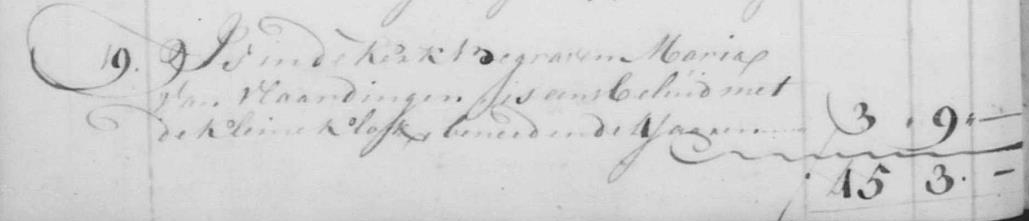 19. Is in de kerk begraven Maria
Van Vlaardingen, is eens beluid met
de kleine klok, beneeden de 4 Jaaren 3 " 9 " —
45 3 . —